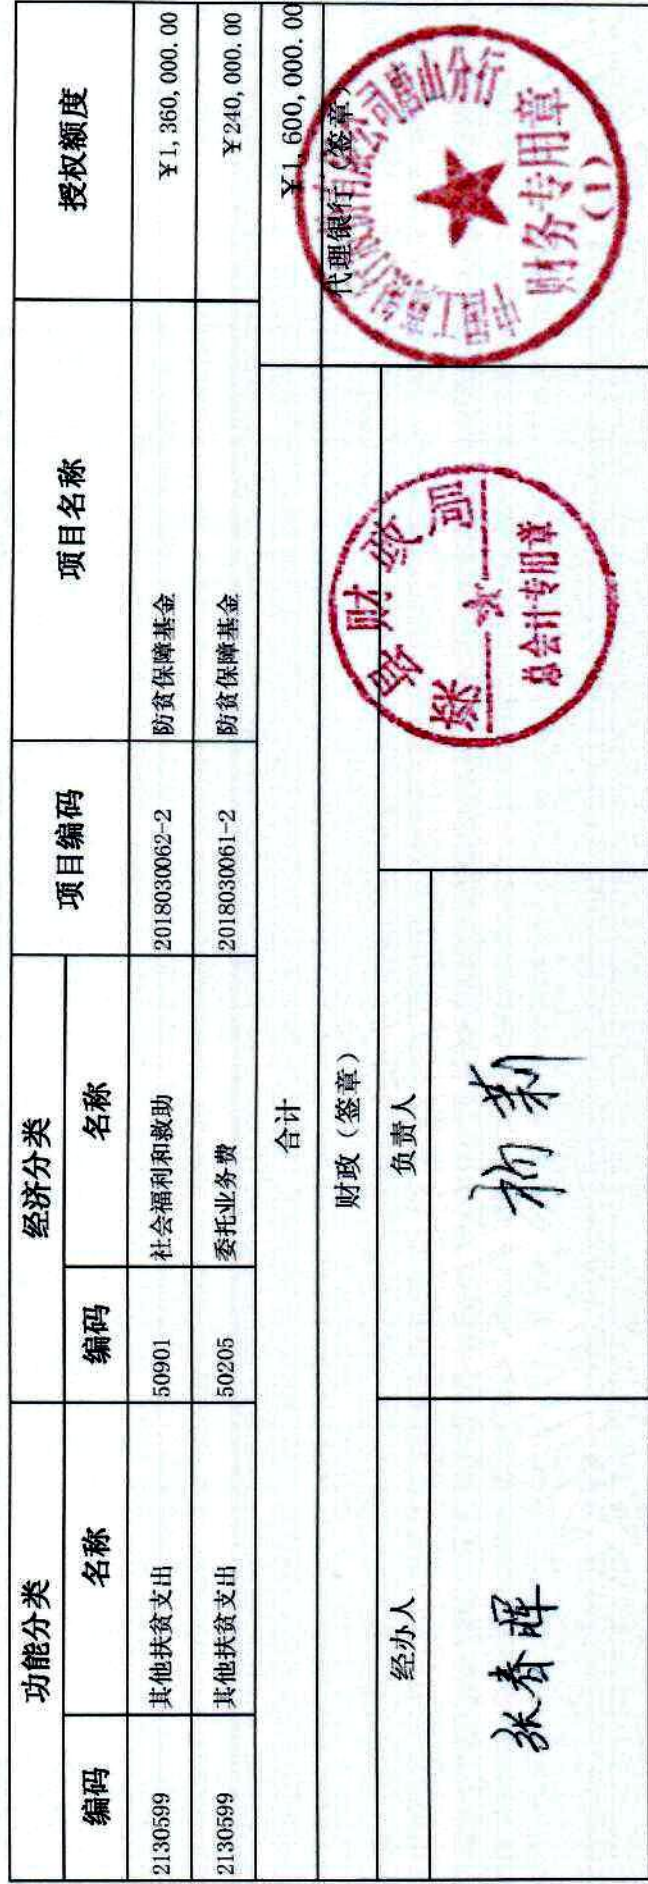 功能分类 经济分类 项目编码 项目名称 授权额度
编码 名称 编码 名称
2130599 其他扶贫支出 50901 社会福利和救助 2018030062-2 防贫保障基金 ¥1,360,000.00
2130599 其他扶贫支出 50205 委托业务费 2018030061-2 防贫保障基金 ¥240,000.00
合计 ¥1,600,000.00
财政（签章） 代理银行（签章）
经办人 负责人
张春晖
财政局
总会计专用章
中国工商银行股份有限公司唐山分行
财务专用章
(1)